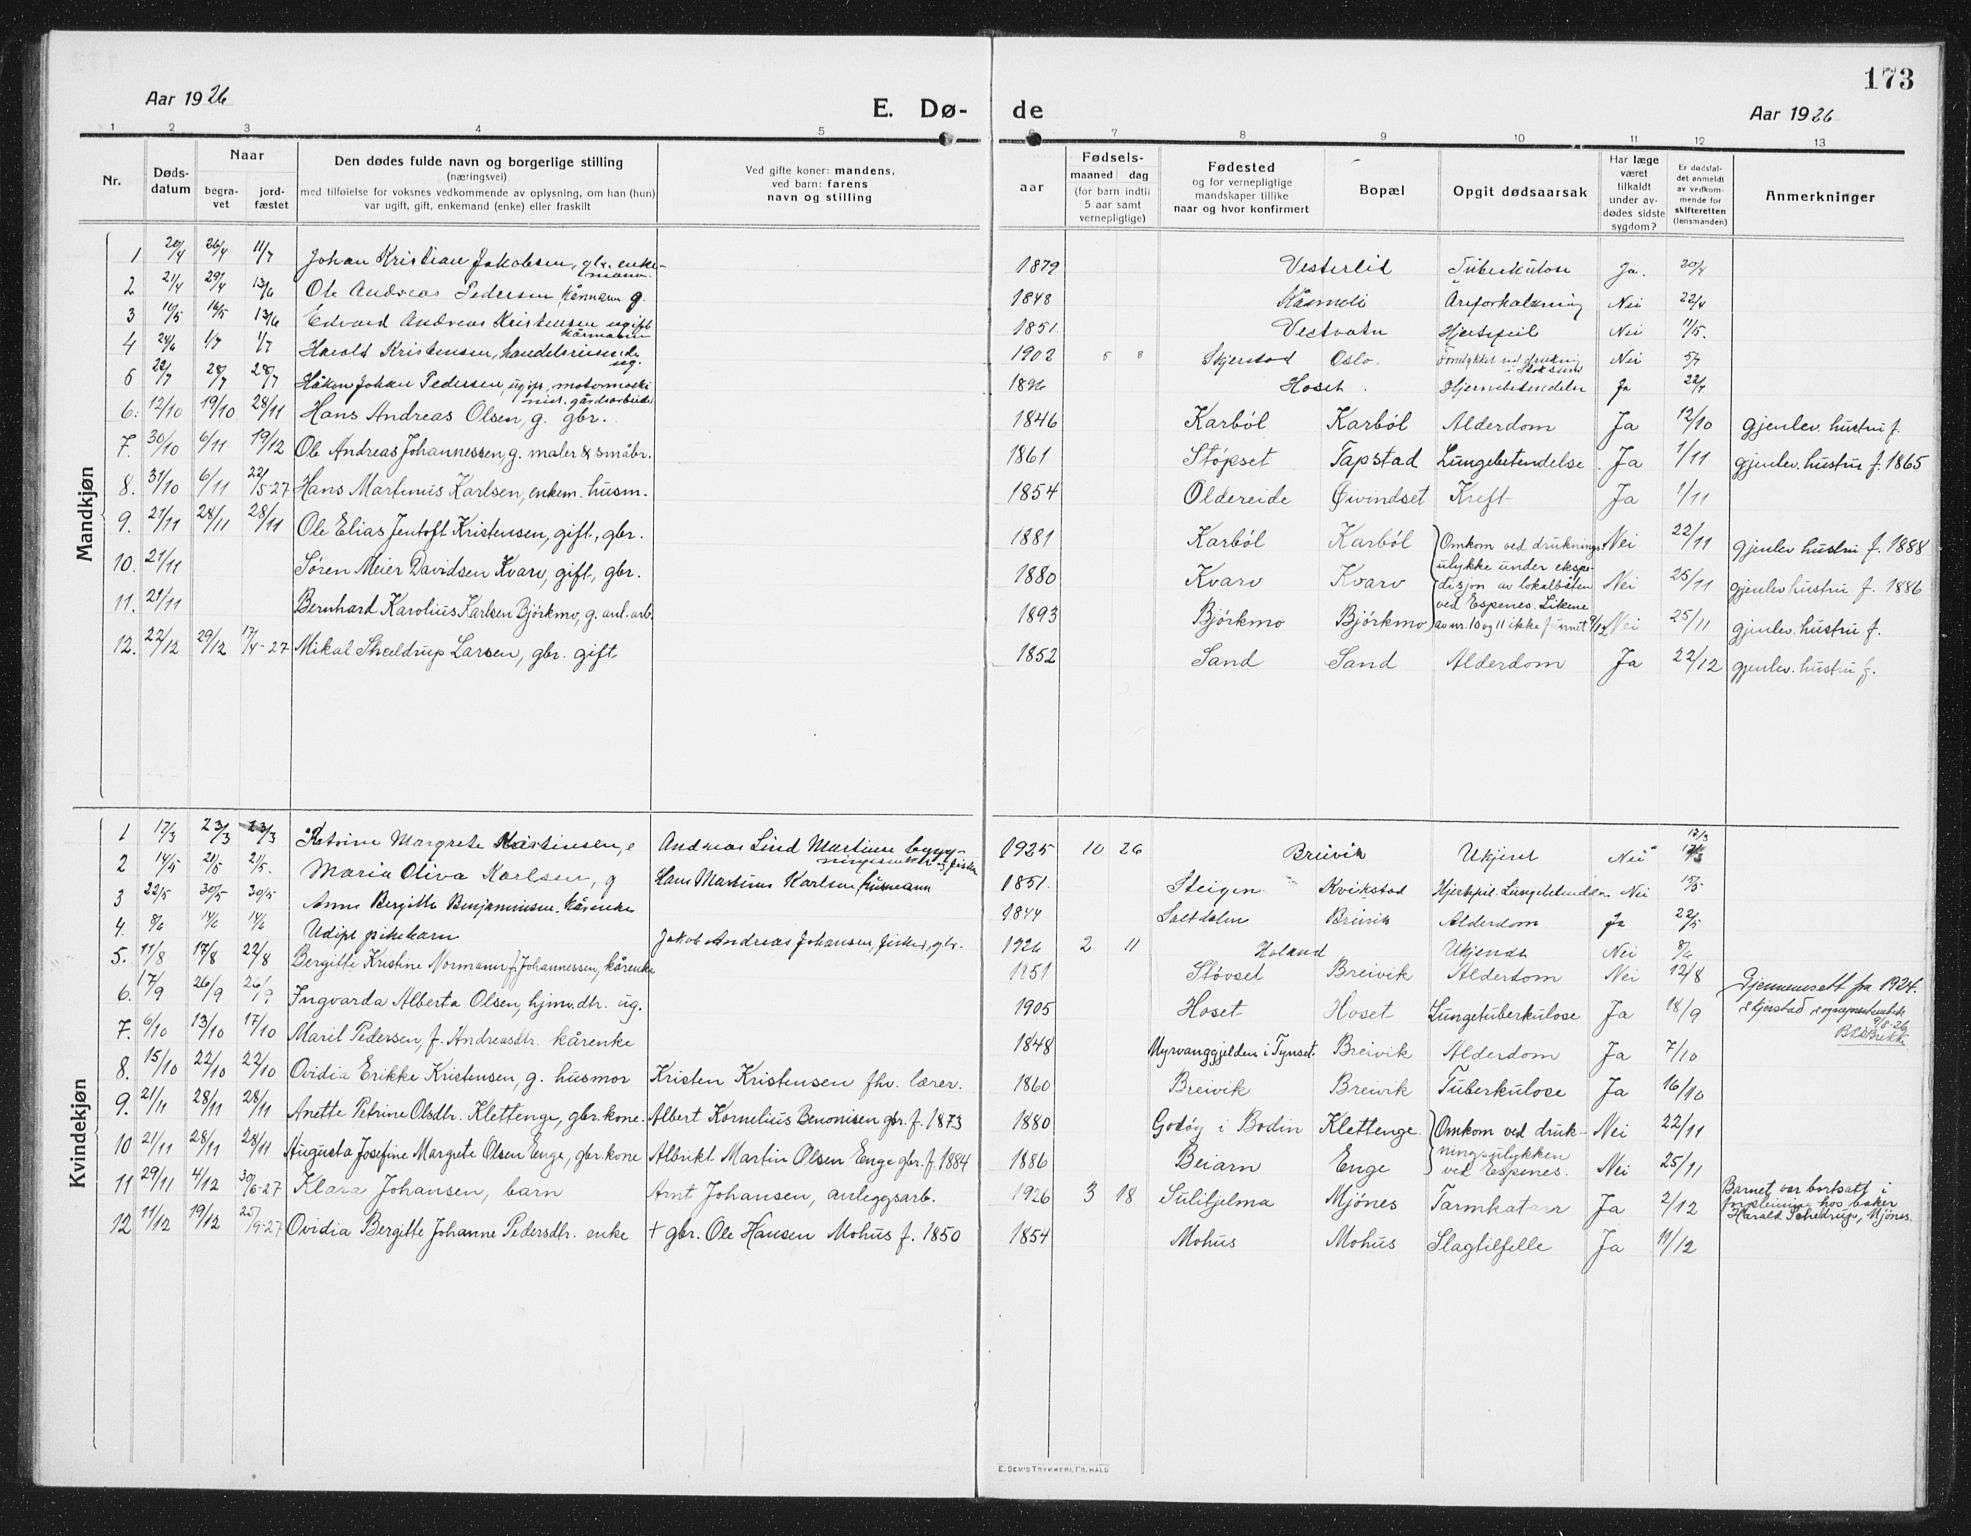 173
Aar 1926
E. Dø-
de
Aar 1926
1 2 3 4 5 6 7 8 9 10 11 12 13
Nr.
Døds-
datum
Naar
begra-
vet
jord-
fæstet
Den dødes fulde navn og borgerlige stilling
(næringsvei)
med tilføielse for voksnes vedkommende av oplysning, om han (hun)
var ugift, gift, enkemand (enke) eller fraskilt
Ved gifte koner: mandens,
ved barn: farens
navn og stilling
aar
Fødsels-
maaned dag
(for barn indtil
5 aar samt
vernepligtige)
Fødested
og for vernepligtige
mandskaper tillike
naar og hvor konfirmert
Bopæl
Opgit dødsaarsak
Har læge
været
tilkaldt
under av-
dødes sidste
sygdom?
Er dødsfal-
det anmeldt
av vedkom-
mende for
skifteretten
(lensmanden)
Anmerkninger
Mandkjøn
1 20/4 26/4 11/7 Johan Kristian Jakobsen, gbr. enke-
mann. 1879 Vesterlid Tuberkulose Ja. 20/4
2 21/4 29/4 13/6 Ole Andreas Pedersen kårmann g. 1848 Åreforkalkning Nei 22/4
3 10/5 16/5 13/6 Edvard Andreas Kristensen ugift
kårmann 1851 Vestvatn Hjertefeil Nei 11/5.
4 24/6 1/7 1/7 Harald Kristensen, handelsreisende
ug. 1902 5 8 Skjerstad Oslo. Omkommet ved drukning Nei 5/7
5 22/7 28/7 28/7 Håkon Johan Pedersen, ugift, 1896 Hoset. Hjernebetendelse Ja 22/7
6. 12/10 19/10 28/11 Hans Andreas Olsen, g. gbr. 1846 Karbøl Karbøl Alderdom Ja 12/10 gjenlev. hustru f.
7. 30/10 6/11 19/12 Ole Andreas Johannessen, g. maler & småbr. 1861 Støpset Tapstad Lungebetendelse. Ja 1/11 gjenlev. hustru f. 1865
8. 31/10 6/11 22/5-27 Hans Martinus Karlsen, enkem. husm. 1854 Oldereide Øivindset Kreft Ja 1/11
9. 21/11 28/11 28/11 Ole Elias Jentoft Kristensen, gift, gbr. 1881 Karbøl Karbøl Omkom ved druknings- Nei 22/11 gjenlev hustru f. 1888
ulykke under ekspe-
10. 21/11 Søren Meier Davidsen Kvarv, gift, gbr. 1880 Kvarv Kvarv disjon av lokalbåten Nei 25/11 gjenlev hustru f. 1886
ved Espenes. Likene
11. 21/11 Bernhard Karolius Karlsen Bjørkmo, g. anl. arb. 1893 Bjørkmo Bjørkmo av nr. 10 og 11 ikke funnet 9/12 Nei 25/11 gjenlev. hustru f.
12. 22/12 29/12 17/4-27 Mikal Skeldrup Larsen, gbr. gift 1852 Sand Sand Alderdom Ja 22/12 gjenlev. hustru f.
Kvindekjøn
1 17/3 23/3 23/3 Katrine Margrete Martinsen, e Andreas Lind Martinsen 1925 10 26 Breivik Ukjent Nei 17/3
2 14/5 21/5 21/5. Maria Oliva Karlsen, g Hans Martinus Karlsen husmann 1851. Steigen Kvikstad Hjertefeil. Lungebetendelse Nei 15/5
3 22/5 30/5 30/5 Anne Bergitte Benjaminsen, kårenke 1844 Saltdalen Breivik Alderdom Ja 22/5
4. 8/6 14/6 14/6 Udøpt pikebarn Jakob Andreas Johansen, fisker, gbr. 1926 2 11 Holand Ukjendt Nei 8/6
5. 11/8 17/8 22/8 Bergitte Kristine Normann f. Johannessen, kårenke 1851 Støvset Breivik Alderdom Nei 12/8
6. 17/9 26/9 26/9 Ingvarda Alberta Olsen, hjmv. dtr. ug. 1905 Hoset Hoset Lungetuberkulose Ja 18/9 Gjennemsett fra 1924.
Skjerstad sogneprestembete
9/8-26
7. 6/10 13/10 17/10 Maril Pedersen, f. Andreasdtr. kårenke 1848 Myrvanggjelden i Tynset. Breivik Alderdom Ja 7/10
8. 15/10 22/10 22/10 Ovidia Erikke Kristensen, g. husmor Kristen Kristensen fhv. lærer. 1860 Breivik Breivik Tuberkulose Ja 16/10
9. 21/11 28/11 28/11 Anette Petrine Olsdtr. Klettenge, gbr. kone. Albert Kornelius Benonisen gbr. f. 1873 1880 Godøy i Bodin Klettenge. Omkom ved druk- Nei 22/11
ningsulykken
10 21/11 28/11 28/11 Augusta Josefine Margrete Olsen Enge, gbr. kone Albrikt Martin Olsen Enge gbr. f. 1884 1886 Beiarn Enge ved Espenes. Nei 25/11
11 29/11 4/12 30/6-27 Klara Johansen, barn Arnt Johansen, anleggsarb. 1926 3 18 Sulitjelma Mjønes Tarmkatarr Ja 2/12 Barnet var bortsatt i
forpleining hos baker
Harald Schedrup, Mjønes.
12 11/12 19/12 25/9-27 Ovidia Bergitte Johanne Pedersdtr. enke + gbr. Ole Hansen Mohus f. 1850 1854 Mohus Mohus Slagtilfelle Ja 11/12
E. SEM'S TRYKKERI, FR.HALD